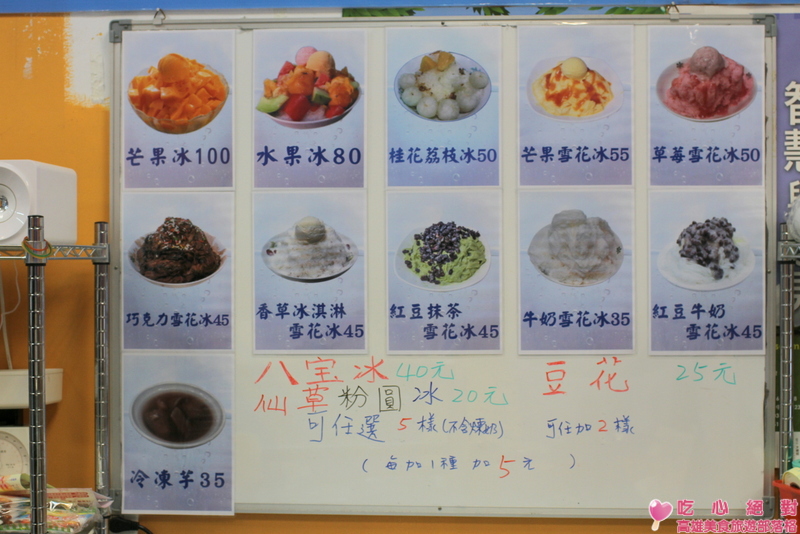 芒果冰100
水果冰80
桂花荔枝冰50
芒果雪花冰55
草莓雪花冰50
巧克力雪花冰45
香草冰淇淋
雪花冰45
紅豆抹茶
雪花冰45
牛奶雪花冰35
紅豆牛奶
雪花冰45
冷凍芋35
八宝冰 40元
仙草粉圓冰 20元
可任選 5樣(不含煉奶)
(每加1種加5元)
豆花 25元
可任加2樣
智慧
吃心絕對
高雄美食旅遊部落格